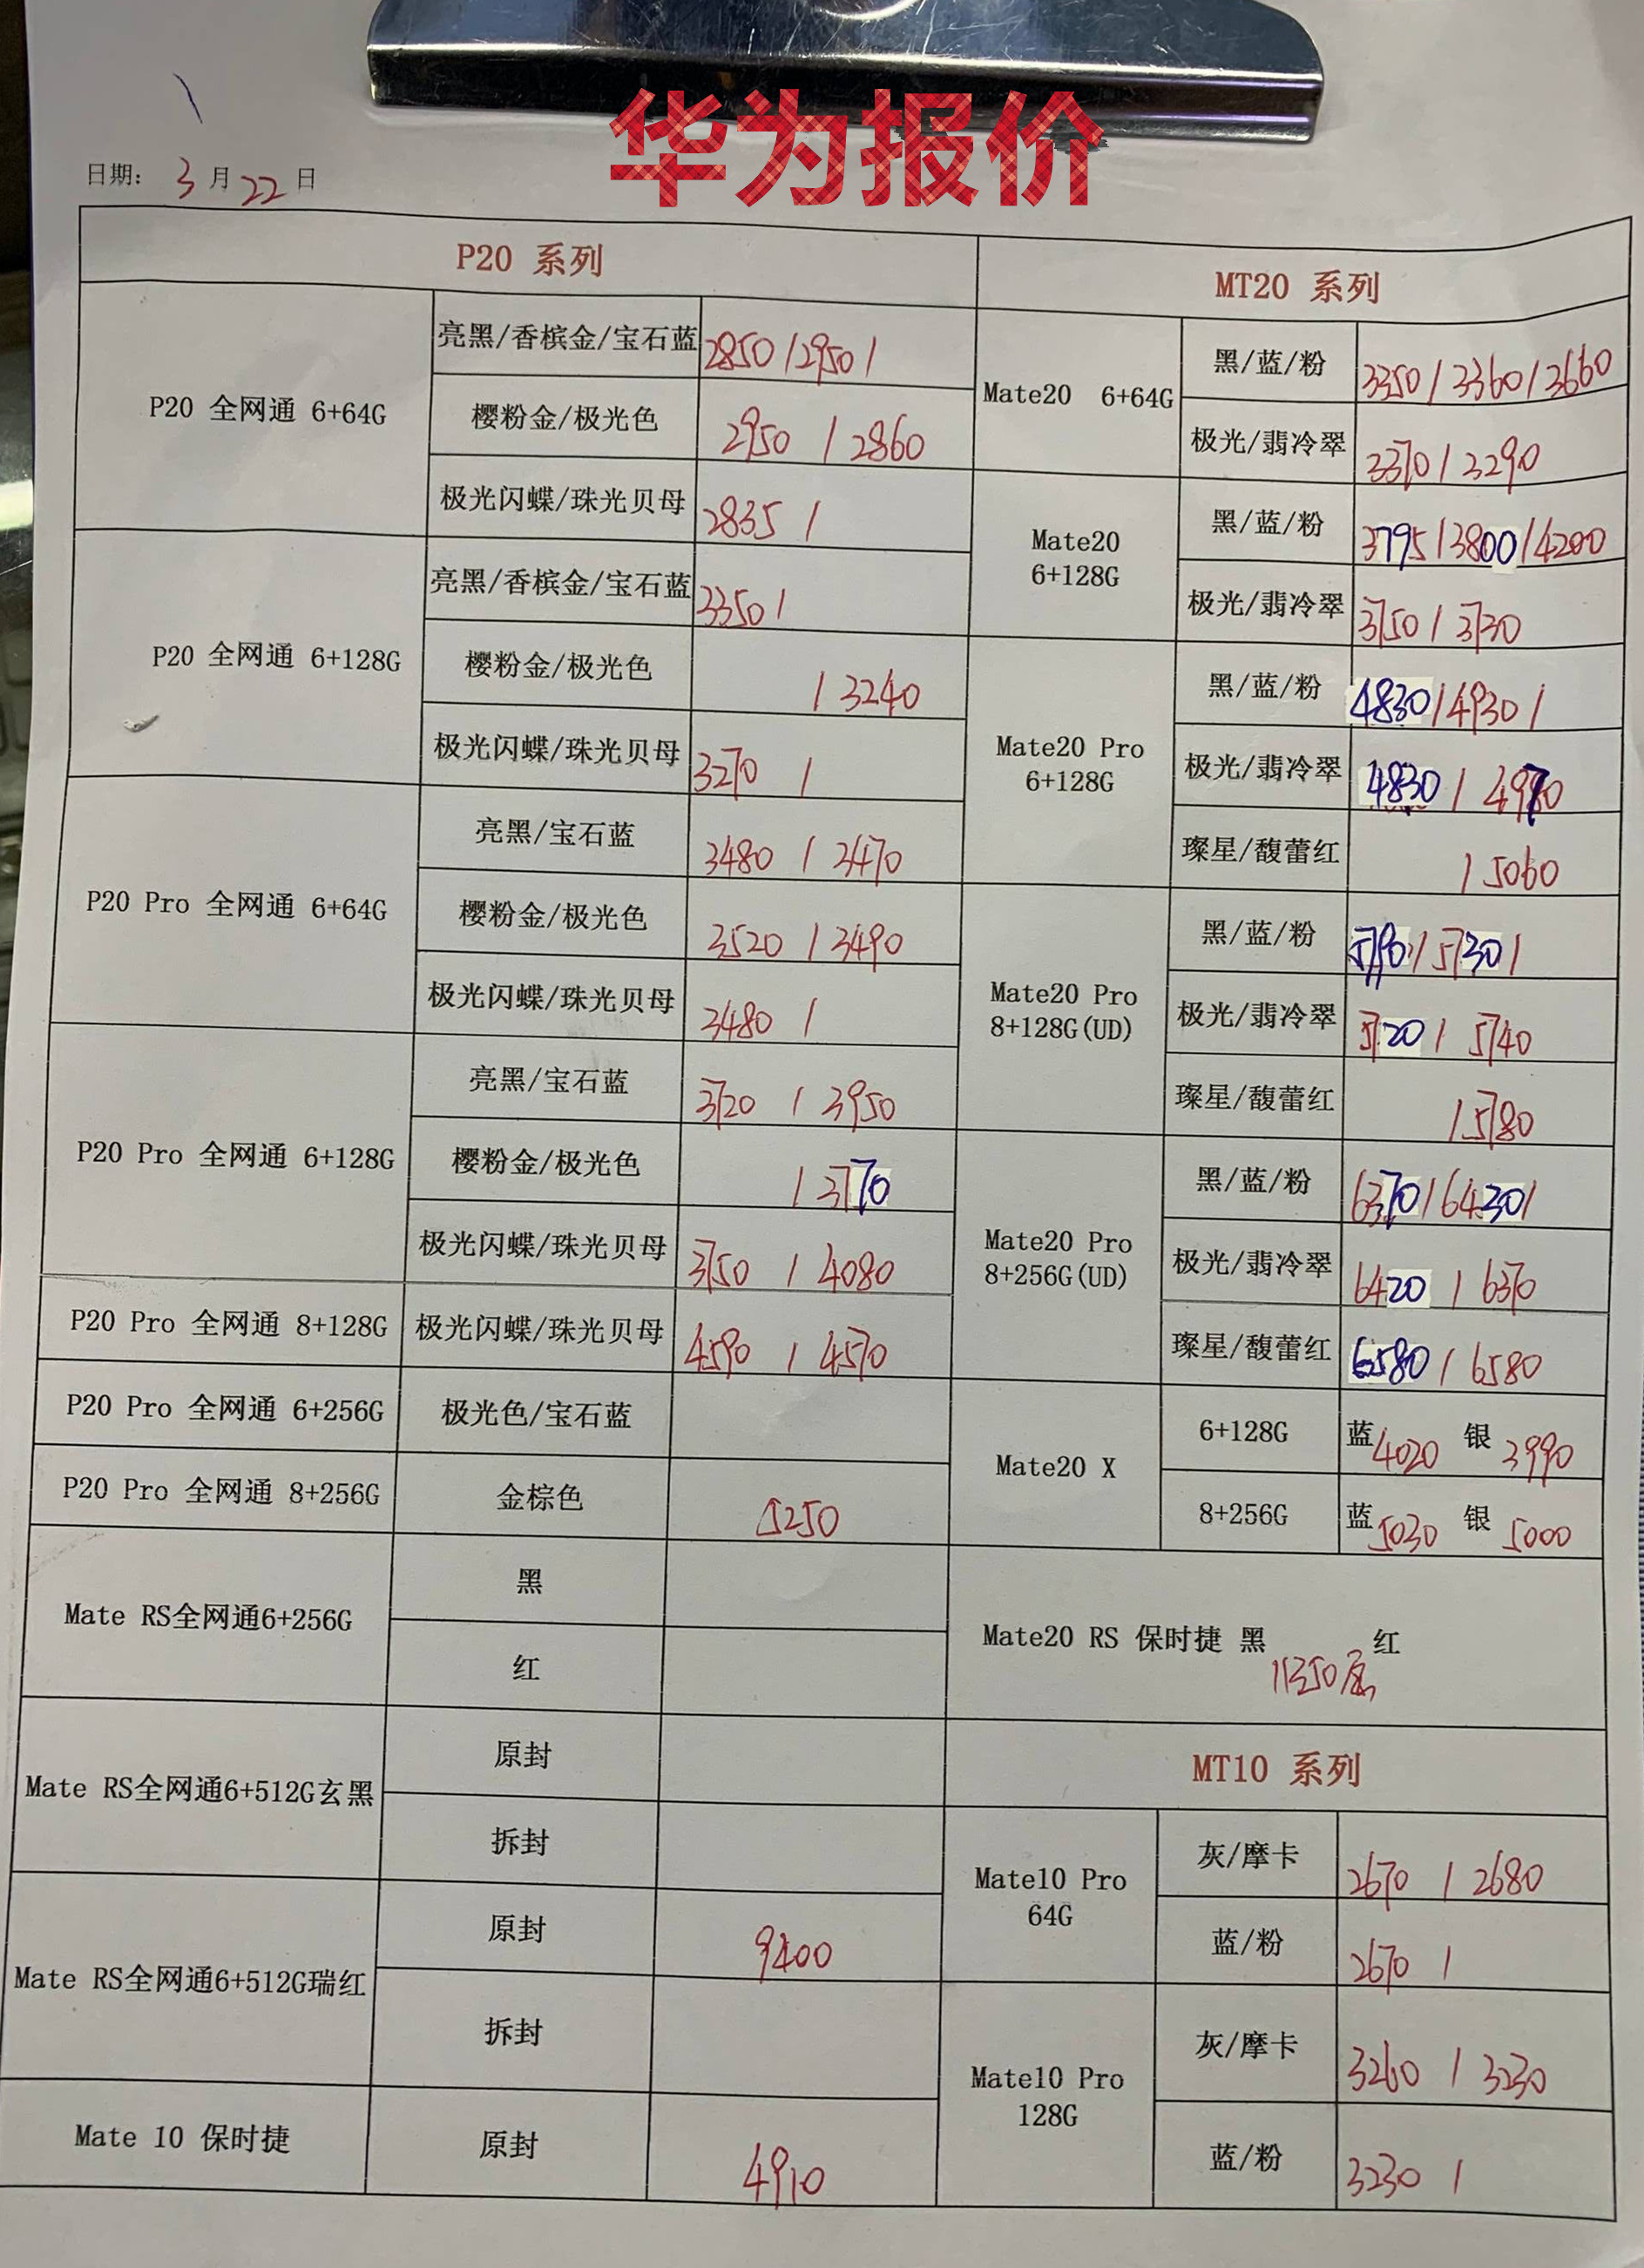 华为报价
日期: 3月22日
P20 系列
P20 全网通 6+64G
亮黑/香槟金/宝石蓝 2850/2950/
樱粉金/极光色 2950/2860
极光闪蝶/珠光贝母 2835/
P20 全网通 6+128G
亮黑/香槟金/宝石蓝 3350/
樱粉金/极光色 /3240
极光闪蝶/珠光贝母 3270/
P20 Pro 全网通 6+64G
亮黑/宝石蓝 3480/3470
樱粉金/极光色 3520/3490
极光闪蝶/珠光贝母 3480/
P20 Pro 全网通 6+128G
亮黑/宝石蓝 3720/3950
樱粉金/极光色 /3770
极光闪蝶/珠光贝母 3750/4080
P20 Pro 全网通 8+128G 极光闪蝶/珠光贝母 4590/4570
P20 Pro 全网通 6+256G 极光色/宝石蓝
P20 Pro 全网通 8+256G 金棕色 5250
Mate RS全网通6+256G
黑
红
Mate RS全网通6+512G玄黑
原封
拆封
Mate RS全网通6+512G瑞红
原封 9400
拆封
Mate 10 保时捷 原封 4910
MT20 系列
Mate20 6+64G
黑/蓝/粉 3350/3360/3660
极光/翡冷翠 3370/3290
Mate20
6+128G
黑/蓝/粉 3795/3800/4200
极光/翡冷翠 3750/3730
Mate20 Pro
6+128G
黑/蓝/粉 4830/4930/
极光/翡冷翠 4830/4970
璨星/馥蕾红 /5060
Mate20 Pro
8+128G(UD)
黑/蓝/粉 5790/5730/
极光/翡冷翠 5720/5740
璨星/馥蕾红 /5780
Mate20 Pro
8+256G(UD)
黑/蓝/粉 6370/6430/
极光/翡冷翠 6420/6370
璨星/馥蕾红 6580/6580
Mate20 X
6+128G 蓝4020 银3990
8+256G 蓝5030 银5000
Mate20 RS 保时捷 黑 11350底 红
MT10 系列
Mate10 Pro
64G
灰/摩卡 2670/2680
蓝/粉 2670/
Mate10 Pro
128G
灰/摩卡 3260/3230
蓝/粉 3230/